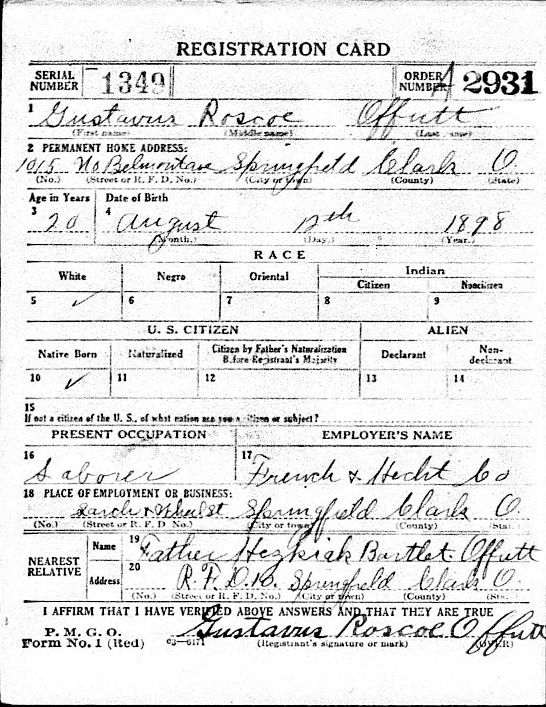 REGISTRATION CARD
SERIAL NUMBER 1349 ORDER NUMBER A 2931
1 Gustavus Roscoe Offutt
(First name) (Middle name) (Last name)
2 PERMANENT HOME ADDRESS:
1015 No Belmont ave Springfield Clark O.
(No.) (Street or R. F. D. No.) (City or town) (County) (State)
Age in Years Date of Birth
3 20 4 August 12th 1898
(Month.) (Day.) (Year.)
RACE
White Negro Oriental Indian
Citizen Noncitizen
5 ✓ 6 7 8 9
U. S. CITIZEN ALIEN
Native Born Naturalized Citizen by Father's Naturalization Before Registrant's Majority Declarant Non-declarant
10 ✓ 11 12 13 14
15
If not a citizen of the U. S., of what nation are you a citizen or subject?
PRESENT OCCUPATION EMPLOYER'S NAME
16 Laborer 17 French & Hecht Co
18 PLACE OF EMPLOYMENT OR BUSINESS:
St Springfield Clark O.
(No.) (Street or R. F. D. No.) (City or town) (County) (State)
NEAREST RELATIVE Name 19 Father Hezkiah Bartlet Offutt
Address 20 R.F.D. 10. Springfield Clark O.
(No.) (Street or R. F. D. No.) (City or town) (County) (State)
I AFFIRM THAT I HAVE VERIFIED ABOVE ANSWERS AND THAT THEY ARE TRUE
P. M. G. O.
Form No. 1 (Red) 03—6171 Gustavus Roscoe Offutt
(Registrant's signature or mark) (OVER)